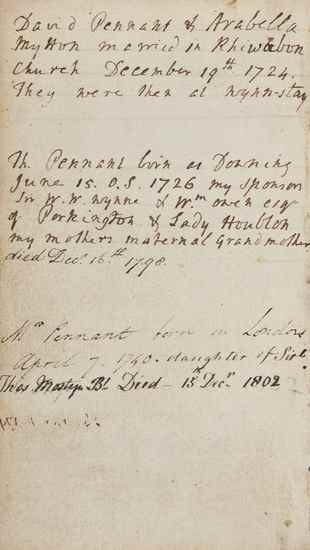 David Pennant & Arabella
Mytton married in Rhiwabon
Church December 19th 1724.
They were then at Wynn-stay
Th. Pennant born at Downing
June 15. O.S. 1726 my sponsors
Sr W.W. Wynne & Wm owen esqr
of Porkington & Lady Houblon
my mothers maternal Grandmother
died Decr 16th 1798.
Mrs Pennant born in London
April 7 1740. daughter of Sir
Thos Mostyn Bt. Died - 15th Decr 1802